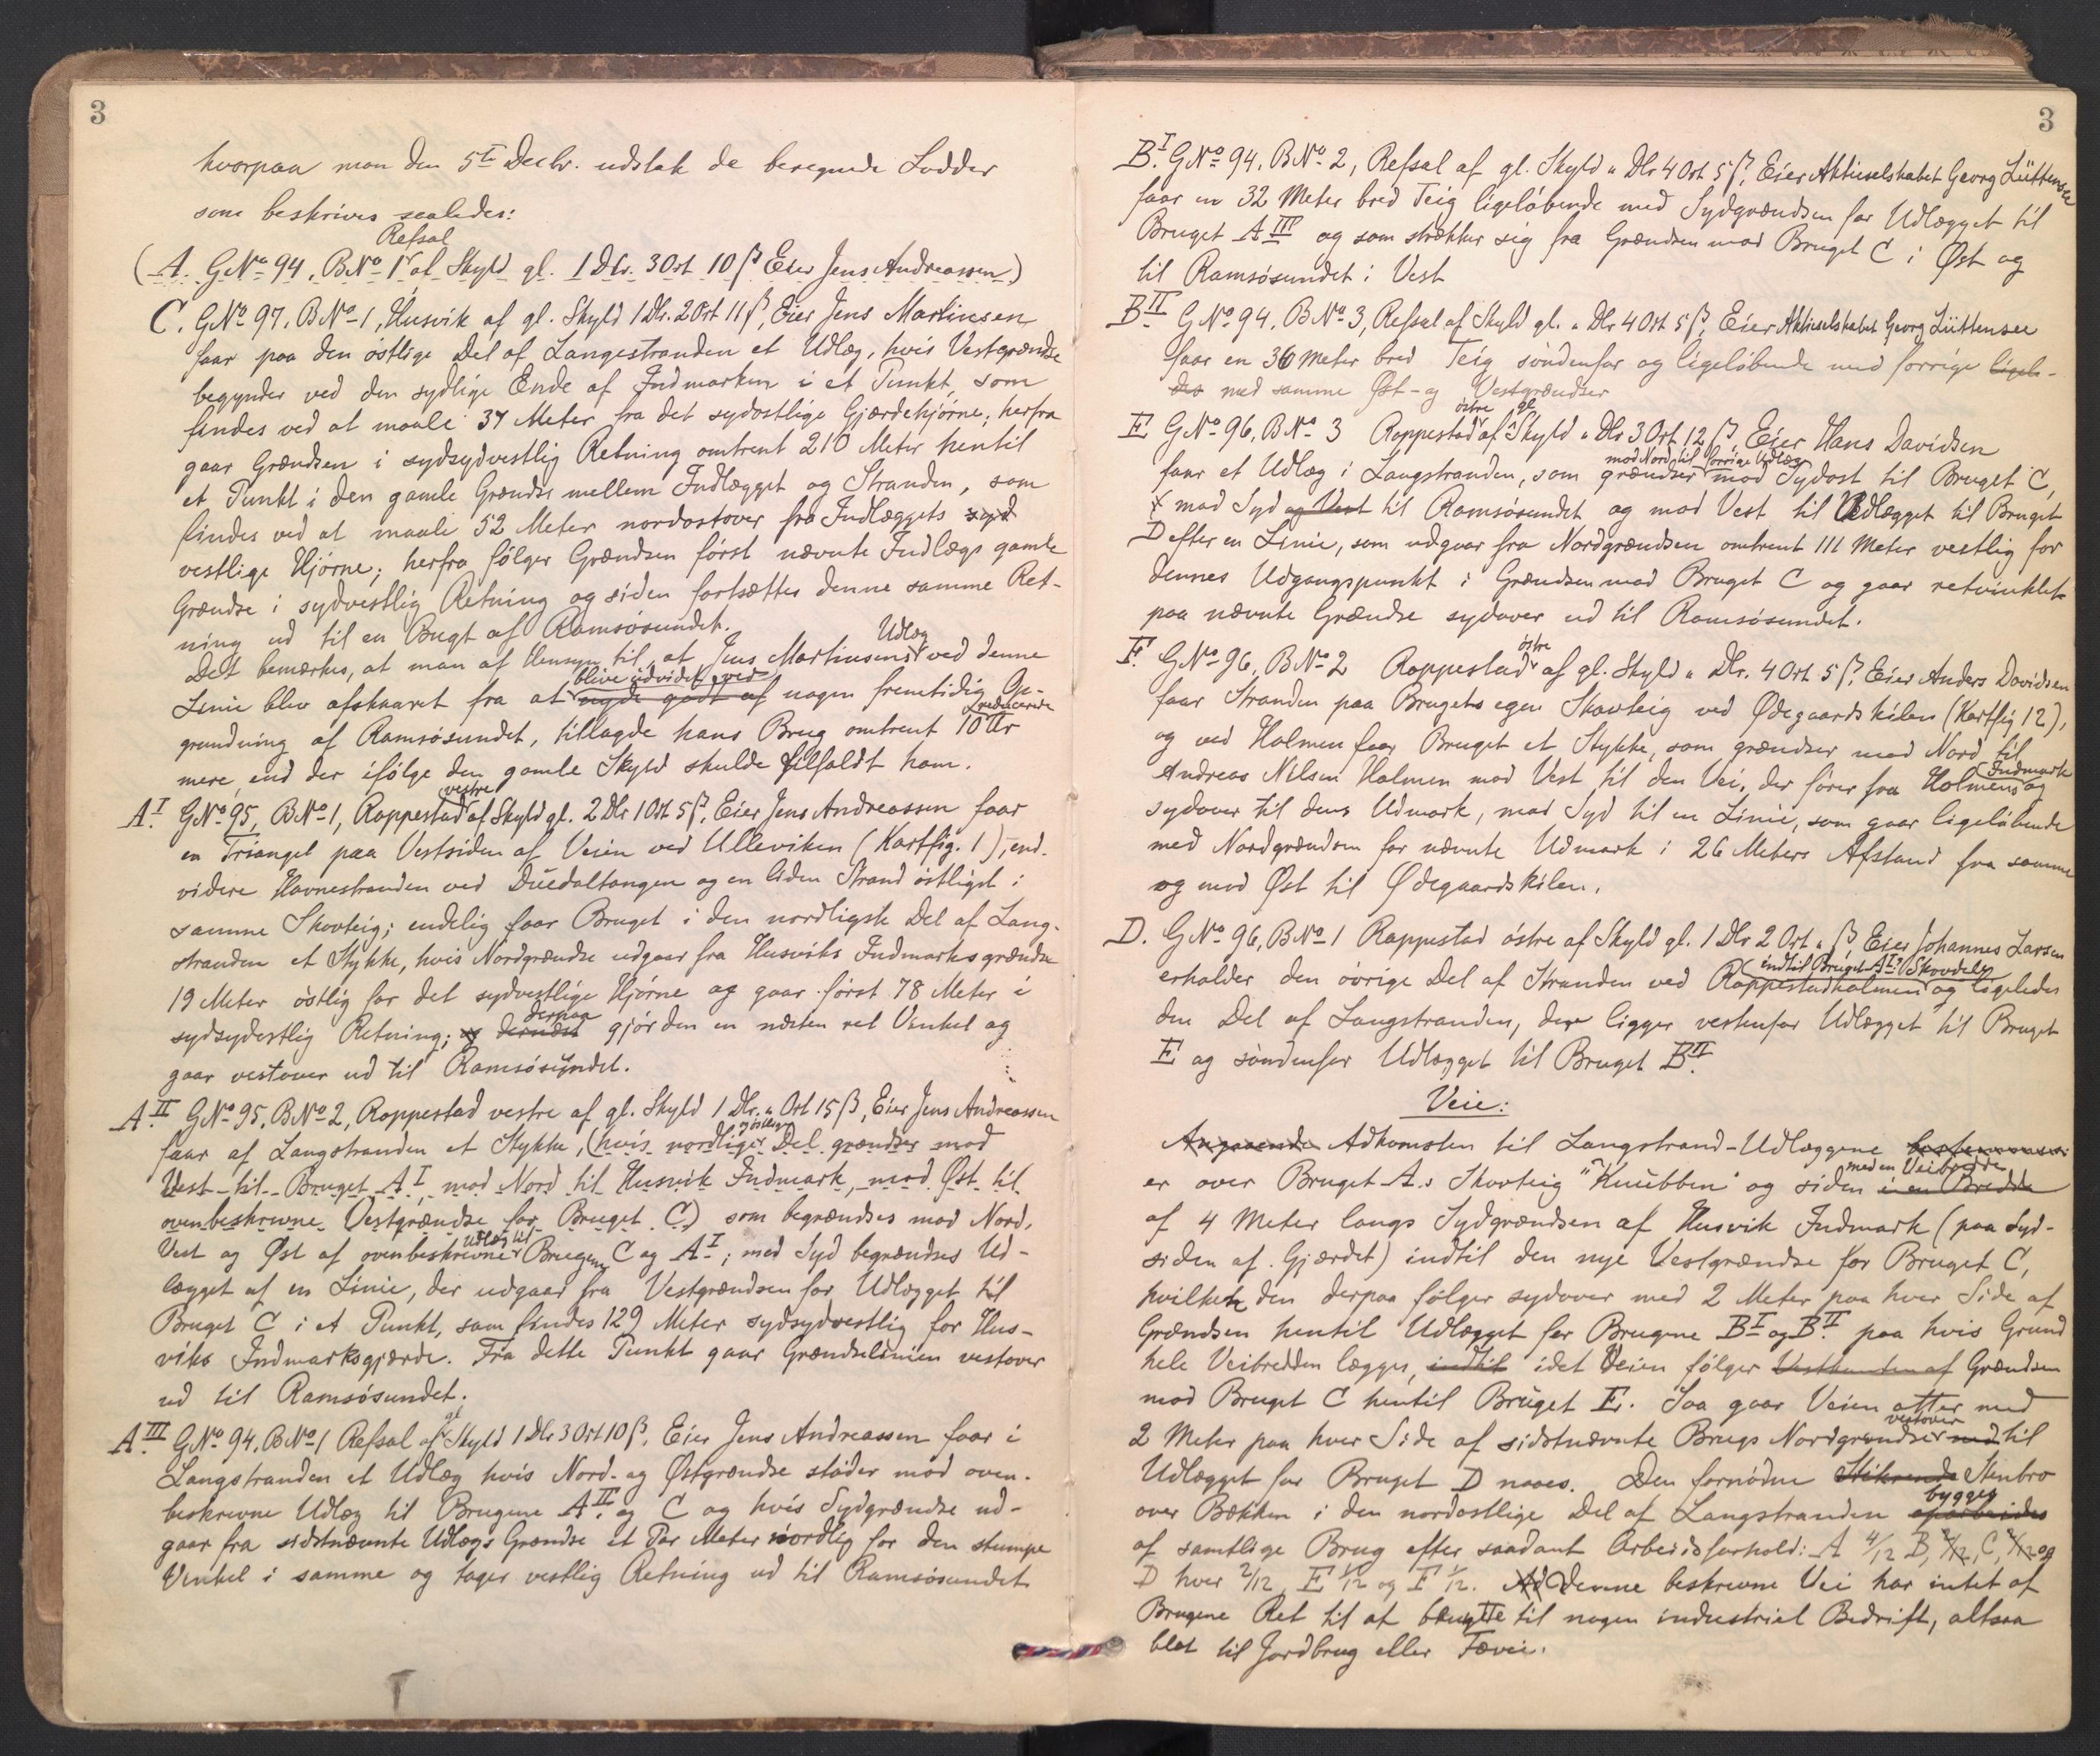 3
hvorpaa man den 5te Decbr. udstak de beregnede Lodder
som beskrives saaledes:
Refsal
(A. GNo 94, BNo 1 af Skyld gl. 1 Dlr. 3 Ort 10 β Eier Jens Andreassen)
C. GNo 97. BNo 1, Husvik af gl. Skyld 1 Dlr. 2 Ort 11 β, Eier Jens Martinsen
faar paa den östlige Del af Langestranden et Udlæg, hvis Vestgrændse
begynder ved den sydlige Ende af Indmarken i et Punkt, som
findes ved at maale 37 Meter fra det sydostlige Gjærdehjörne; herfra
gaar Grændsen i sydsydvestlig Retning omtrent 210 Meter hentil
et Punkt i den gamle Grændse mellem Indlægget og Stranden, som
findes ved at maale 52 Meter nordostover fra Indlæggets syd
vestlige Hjörne; herfra fölger Grændsen först nævnte Indlægs gamle
Grændse i sydvestlig Retning og siden fortsættes denne samme Ret-
ning ud til en Bugt af Ramsösundet.
Udlæg
Det bemærkes, at man af Hensyn til, at Jens Martinsens ved denne
blive udvidet ved
Linie blev afskaaret fra at nyde godt af nogen fremtidig Op-
reducerede
grundning af Ramsösundet, tillagde hans Brug omtrent 10 Ar
mere, end der ifölge den gamle Skyld skulde tilfaldt ham.
vestre
A I. GNo 95, BNo 1, Rappestad af Skyld gl. 2 Dlr 1 Ort 5 β, Eier Jens Andreassen faar
en Triangel paa Vestsiden af Veien ved Ulleviken (Kartfig. 1), end-
videre Havnestranden ved Duedaltangen og en liden Strand östligst i
samme Skovteig; endelig faar Bruget i den nordligste Del af Lang-
stranden et Stykke, hvis Nordgrændse udgaar fra Husviks Indmarksgrændse
19 Meter östlig for det sydvestlige Hjörne og gaar först 78 Meter i
derpaa
sydsydostlig Retning; og dernæst gjör den en næsten ret Vinkel og
gaar vestover ud til Ramsösundet.
A II. GNo 95, BNo 2, Rappestad vestre af gl. Skyld 1 Dlr. " Ort 15 β, Eier Jens Andreassen
og östlige
faar af Langstranden et Stykke, (hvis nordlige Del grændser mod
Vest til Bruget A I, mod Nord til Husvik Indmark, mod Öst til
ovenbeskrevne Vestgrændse for Bruget C) som begrændses mod Nord,
Udlæg til
Vest og Öst af ovenbeskrevne Brugene C og A I; mod Syd begrændses Ud-
lægget af en Linie, der udgaar fra Vestgrændsen for Udlægget til
Bruget C i et Punkt, som findes 129 Meter sydsydvestlig for Hus-
viks Indmarksgjærde. Fra dette Punkt gaar Grændselinien vestover
ud til Ramsösundet.
gl
A III. GNo 94, BNo 1 Refsal af Skyld 1 Dlr 3 Ort 10 β, Eier Jens Andreassen faar i
Langstranden et Udlæg hvis Nord- og Östgrændse stöder mod oven-
beskrevne Udlæg til Brugene A II og C og hvis Sydgrændse ud-
gaar fra sidstnævnte Udlægs Grændse et Par Meter nordlig for den stumpe
Vinkel i samme og tager vestlig Retning ud til Ramsösundet
3
B I. GNo 94. BNo 2, Refsal af gl. Skyld " Dlr 4 Ort 5 β, Eier Aktieselskabet Georg Lüttensee
faar en 32 Meter bred Teig ligelöbende med Sydgrændsen for Udlægget til
Bruget A III og som strækker sig fra Grændsen mod Bruget C i Øst og
til Ramsösundet i Vest
B II GNo 94. BNo 3, Refsal af Skyld gl. " Dlr 4 Ort 5 β, Eier Aktieselskabet Georg Lüttensee
faar en 36 Meter bred Teig söndenfor og ligelöbende med forrige ligele-
des med samme Øst- og Vestgrændser
östre gl
E GNo 96, BNo 3 Rappestad af Skyld " Dlr 3 Ort 12 β, Eier Hans Davidsen
mod Nord til forrige Udlæg
faar et Udlæg i Langstranden, som grændser mod Sydost til Bruget C,
mod Syd og Vest til Ramsösundet og mod Vest til Udlægget til Bruget
D efter en Linie, som udgaar fra Nordgrændsen omtrent 111 Meter vestlig for
dennes Udgangspunkt i Grændsen mod Bruget C og gaar retvinklet
paa nævnte Grændse sydover ud til Ramsösundet.
östre
F. GNo 96, BNo 2 Rappestad af gl. Skyld " Dlr. 4 Ort 5 β, Eier Anders Davidsen
faar Stranden paa Brugets egen Skovteig ved Ødegaardskilen (Kartfig 12),
og ved Holmen faar Bruget et Stykke, som grændser mod Nord til
Indmark
Andreas Nilsen Holmen mod Vest til den Vei, der förer fra Holmens og
sydover til dens Udmark, mod Syd til en Linie, som gaar ligelöbende
med Nordgrændsen for nævnte Udmark i 26 Meters Afstand fra samme
og mod Øst til Ødegaardskilen.
D. GNo 96, BNo 1 Rappestad östre af Skyld gl. 1 Dlr 2 Ort " β, Eier Johannes Larsen
indtil Bruget A I's Skovdele
erholder den övrige Del af Stranden ved Rappestadholmen og ligeledes
den Del af Langstranden, der ligger vestenfor Udlægget til Bruget
E og söndenfor Udlægget til Bruget B II.
Veie:
Angaaende Adkomsten til Langstrand-Udlæggene
med en Veibredde
er over Bruget A.s Skovteig "Knubben" og siden i en Bredde
af 4 Meter langs Sydgrændsen af Husvik Indmark (paa Syd-
siden af Gjærdet) indtil den nye Vestgrændse for Bruget C,
hvilken den derpaa fölger sydover med 2 Meter paa hver Side af
Grændsen hentil Udlægget for Brugene B I og B II. paa hvis Grund
hele Veibredden lægges, indtil idet Veien fölger Vestkanten af Grændsen
mod Bruget C hentil Bruget E. Saa gaar Veien atter med
vestover
2 Meter paa hver Side af sidstnævnte Brugs Nordgrændse ned til
Udlægget for Bruget D naaes. Den fornödne Stenbro
bygges
over Bækken i den nordostlige Del af Langstranden oparbeides
af samtlige Brug efter saadant Arbeidsforhold: A 4/12 B, 2/12, C, 2/12 og
D hver 2/12, E 1/12 og F 1/12. Ad Denne beskrevne Vei har intet af
Brugene Ret til at benytte til nogen industriel Bedrift, altsaa
blot til Jordbrug eller Fævei.